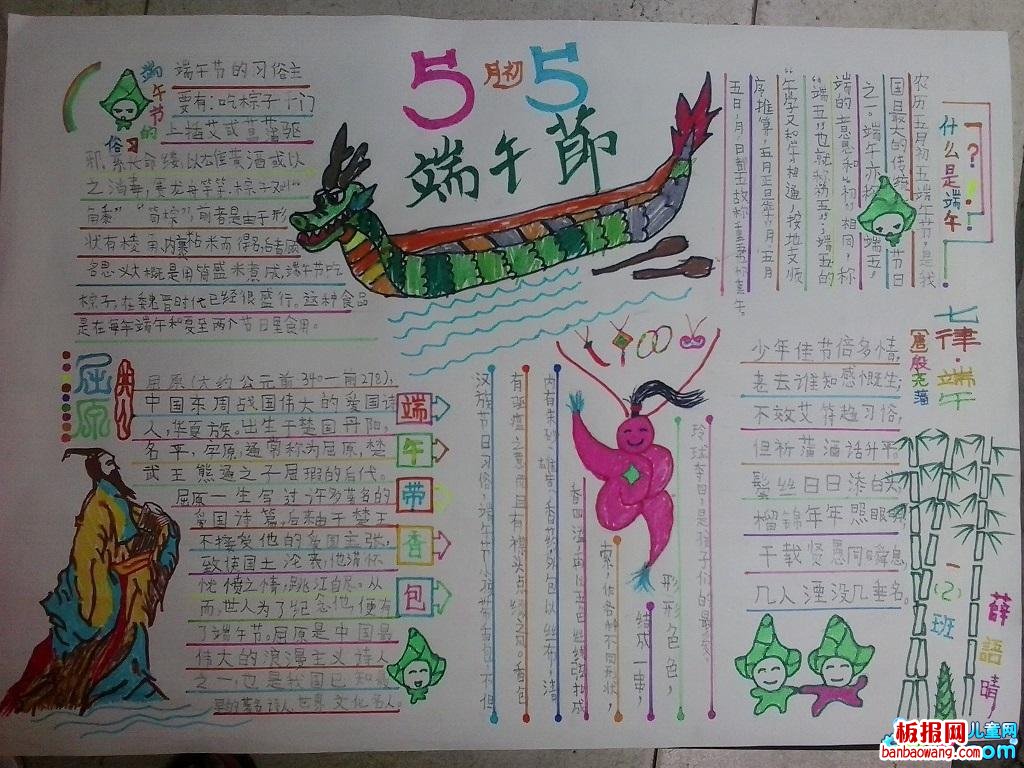 5月初5
端午節
端午节的习俗
端午节的习俗主
要有:吃粽子个门
上插艾或菖蒲驱
邪,系长命缕,以雄黄酒或以
之消毒,赛龙舟等等.粽子又叫“
角黍”“筒粽”,前者是由于形
状有棱角内裹粘米而得名,后者顾
名思义大概是用筒盛米煮成,端午节吃
粽子,在魏晋时代已经很盛行。这种食品
是在每年端午和夏至两个节日里食用。
“?什么是端午!”
农历五月初五端午节,是我
国最大的传统节日
之一。端午亦称端五,
端的意思和“初”相同,称
“端五”也就称初五;端五的
“午”字又和“午”相通,按地支顺
序推算,五月正是“午”月,五月
屈原
屈原(大约公元前340一前278),
中国东周战国伟大的爱国诗
人,华夏族。出生于楚国丹阳,
名平,字原,通常称为屈原,楚
武王熊通之子屈瑕的后代。
屈原一生写过许多著名的
爱国诗篇,后来由于楚王
不接受他的爱国主张,
致使国土沦丧,他满怀
忧愤之情,跳江自尽。从
而,世人为了纪念他,便有
了端午节。屈原是中国最
伟大的浪漫主义诗人
之一,也是我国已知最
早的著名诗人,世界文化名人。
端
午
带
香
包
汉族节日习俗,端午节小孩带香包,不但
有驱瘟之意,而且有襟头点缀之风。香包
内有朱砂、雄黄、香药,外包以丝布,清
香四溢,再以五色丝线弦扣成
索,作各种不同形状,
结成一串,
形形色色,
七律·端午
唐殷尧藩
少年佳节倍多情,
老去谁知感慨生;
不效艾符趋习俗,
但祈蒲酒话升平。
鬓丝日日添白头,
榴锦年年照眼明;
千载贤愚同瞬息,
几人湮没几垂名。
一(2)班
薛語晴
板报网
儿童网
banbaowang.com